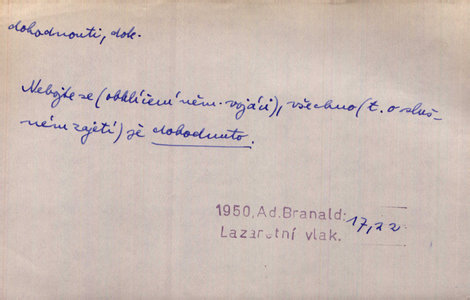 dohodnouti, dok.
Nebojte se (obklíčení něm. vojáci), všechno (t. o sluš-
ném zajetí) je dohodnuto.
1950, Ad. Branald: 17,22
Lazaretní vlak.